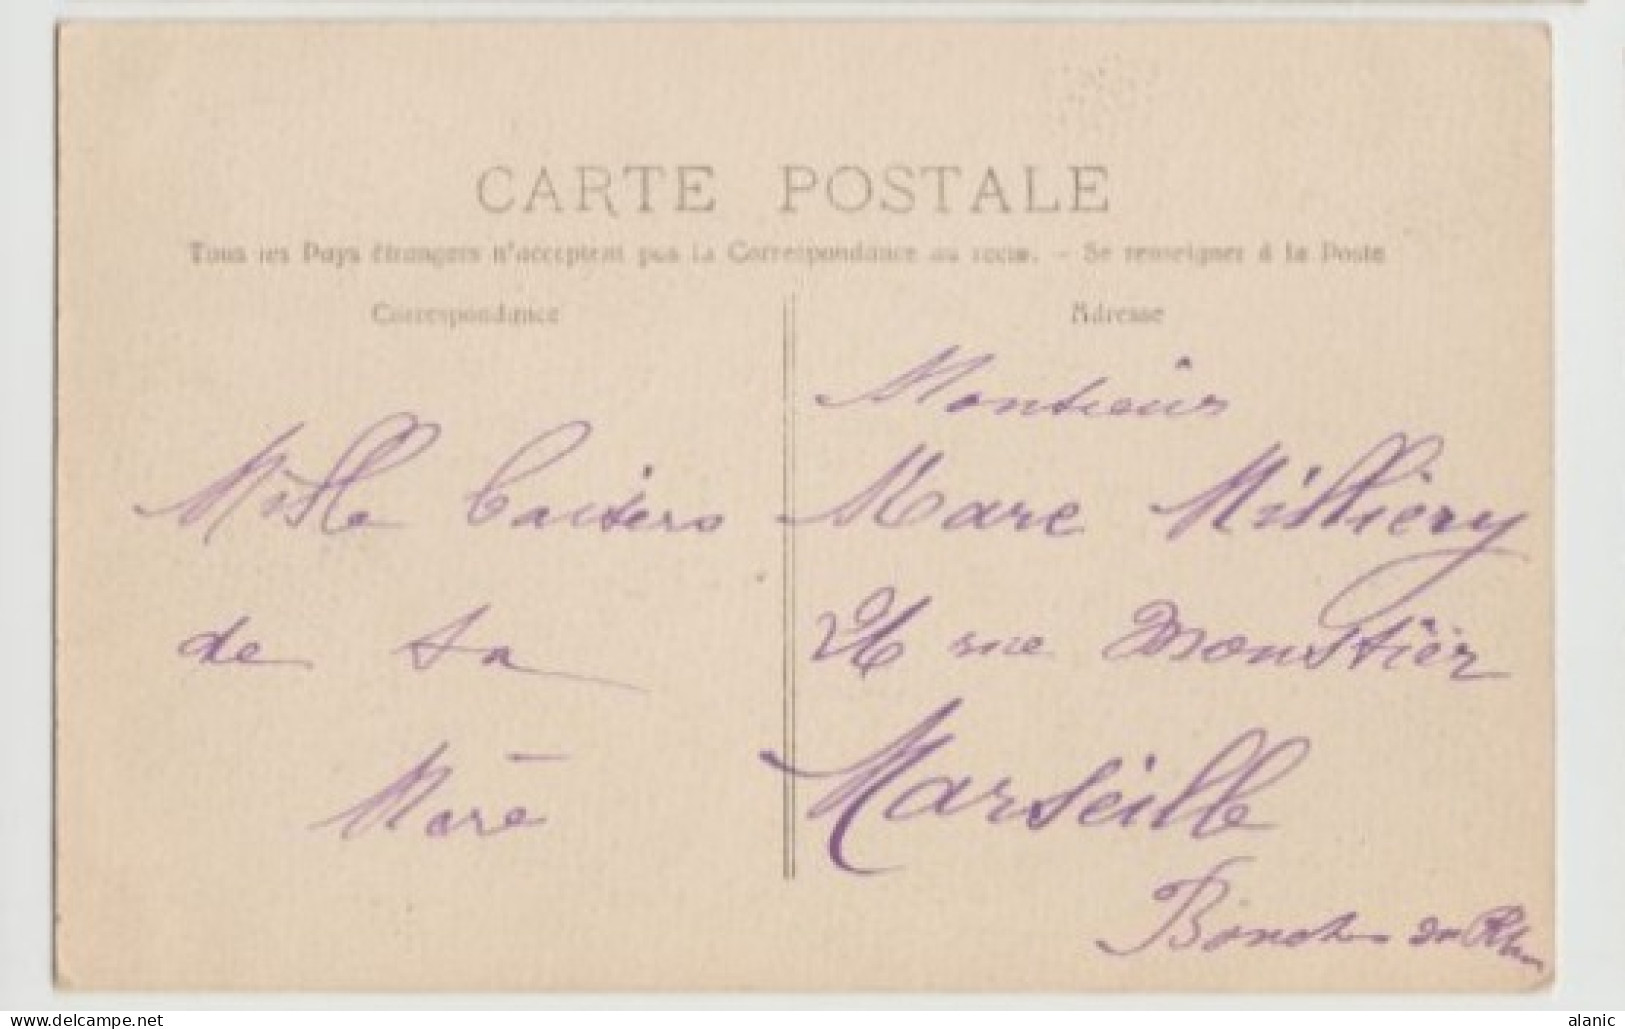 CARTE POSTALE
Tous les Pays étrangers n'acceptent pas la Correspondance au recto. - Se renseigner à la Poste
Correspondance
Adresse
Mille Baisers
de ta
Monsieur
Marc Milliery
26 rue Moustier
Marseille
Bouch du Rhon
delcampe.net
alanic